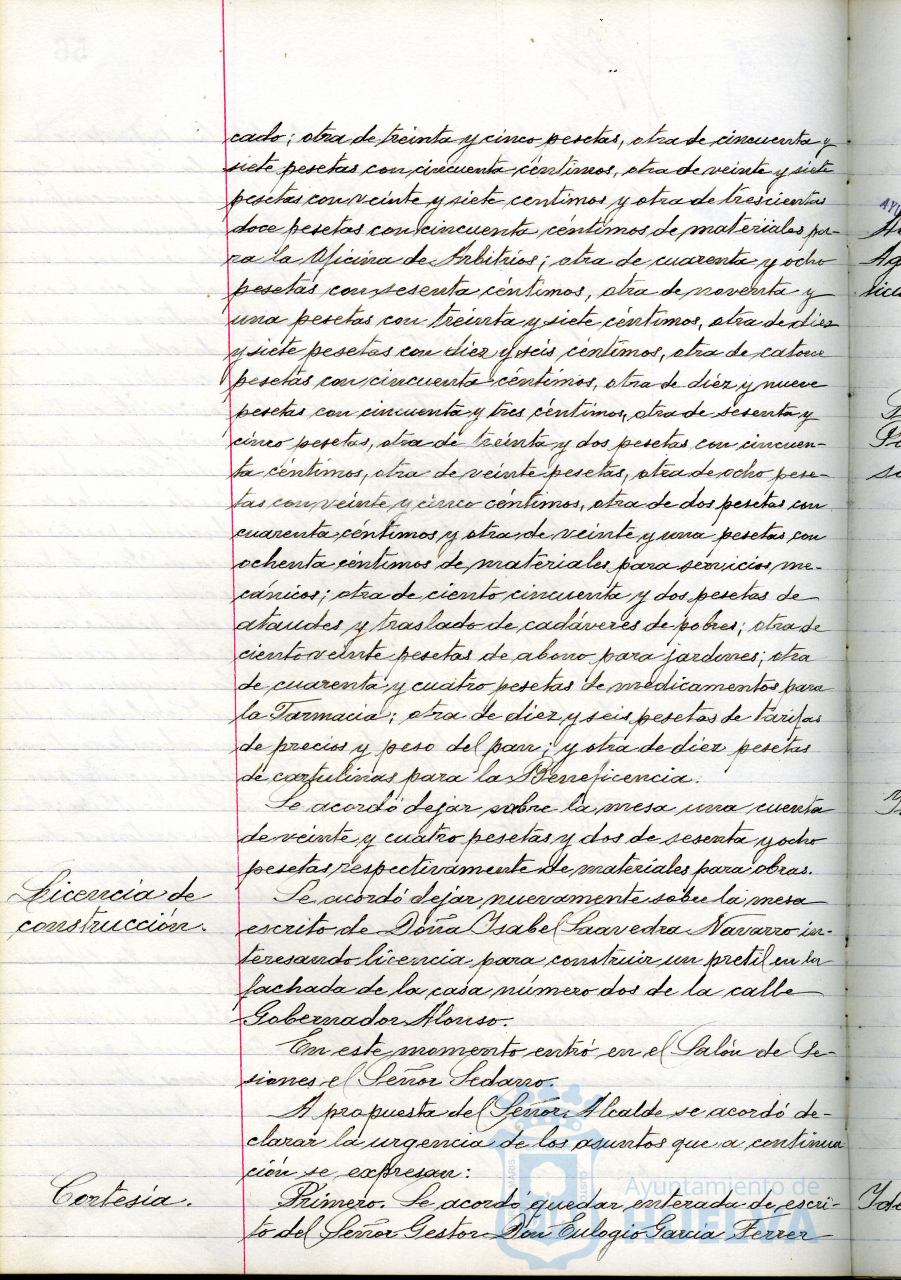 cado; otra de treinta y cinco pesetas, otra de cincuenta y
siete pesetas con cincuenta céntimos, otra de veinte y siete
pesetas con veinte y siete centimos y otra de trescientas
doce pesetas con cincuenta céntimos de materiales pa-
ra la Oficina de Arbitrios; otra de cuarenta y ocho
pesetas con sesenta céntimos, otra de noventa y
una pesetas con treinta y siete céntimos, otra de diez
y siete pesetas con diez y seis céntimos, otra de catorce
pesetas con cincuenta céntimos, otra de diez y nueve
pesetas con cincuenta y tres céntimos, otra de sesenta y
cinco pesetas, otra de treinta y dos pesetas con cincuen-
ta céntimos, otra de veinte pesetas, otra de ocho pese-
tas con veinte y cinco céntimos, otra de dos pesetas con
cuarenta céntimos y otra de veinte y una pesetas con
ochenta céntimos de materiales para servicios me-
cánicos; otra de ciento cincuenta y dos pesetas de
ataudes y traslado de cadáveres de pobres; otra de
ciento veinte pesetas de abono para jardines; otra
de cuarenta y cuatro pesetas de medicamentos para
la Farmacia; otra de diez y seis pesetas de tarifas
de precios y peso del pan; y otra de diez pesetas
de cartulinas para la Beneficencia.
Se acordó dejar sobre la mesa una cuenta
de veinte y cuatro pesetas y dos de sesenta y ocho
pesetas respectivamente de materiales para obras.
Licencia de
construcción.
Se acordó dejar nuevamente sobre la mesa
escrito de Doña Ysabel Saavedra Navarro in-
teresando licencia para construir un pretil en la
fachada de la casa número dos de la calle
Gobernador Alonso.
En este momento entró en el Salón de Se-
siones el Señor Sedarro.
A propuesta del Señor Alcalde se acordó de-
clarar la urgencia de los asuntos que a continua
ción se expresan:
Cortesía.
Primero. Se acordó quedar enterada de escri-
to del Señor Gestor Don Eulogio Garcia Ferrer
Ayuntamiento de
HUELVA